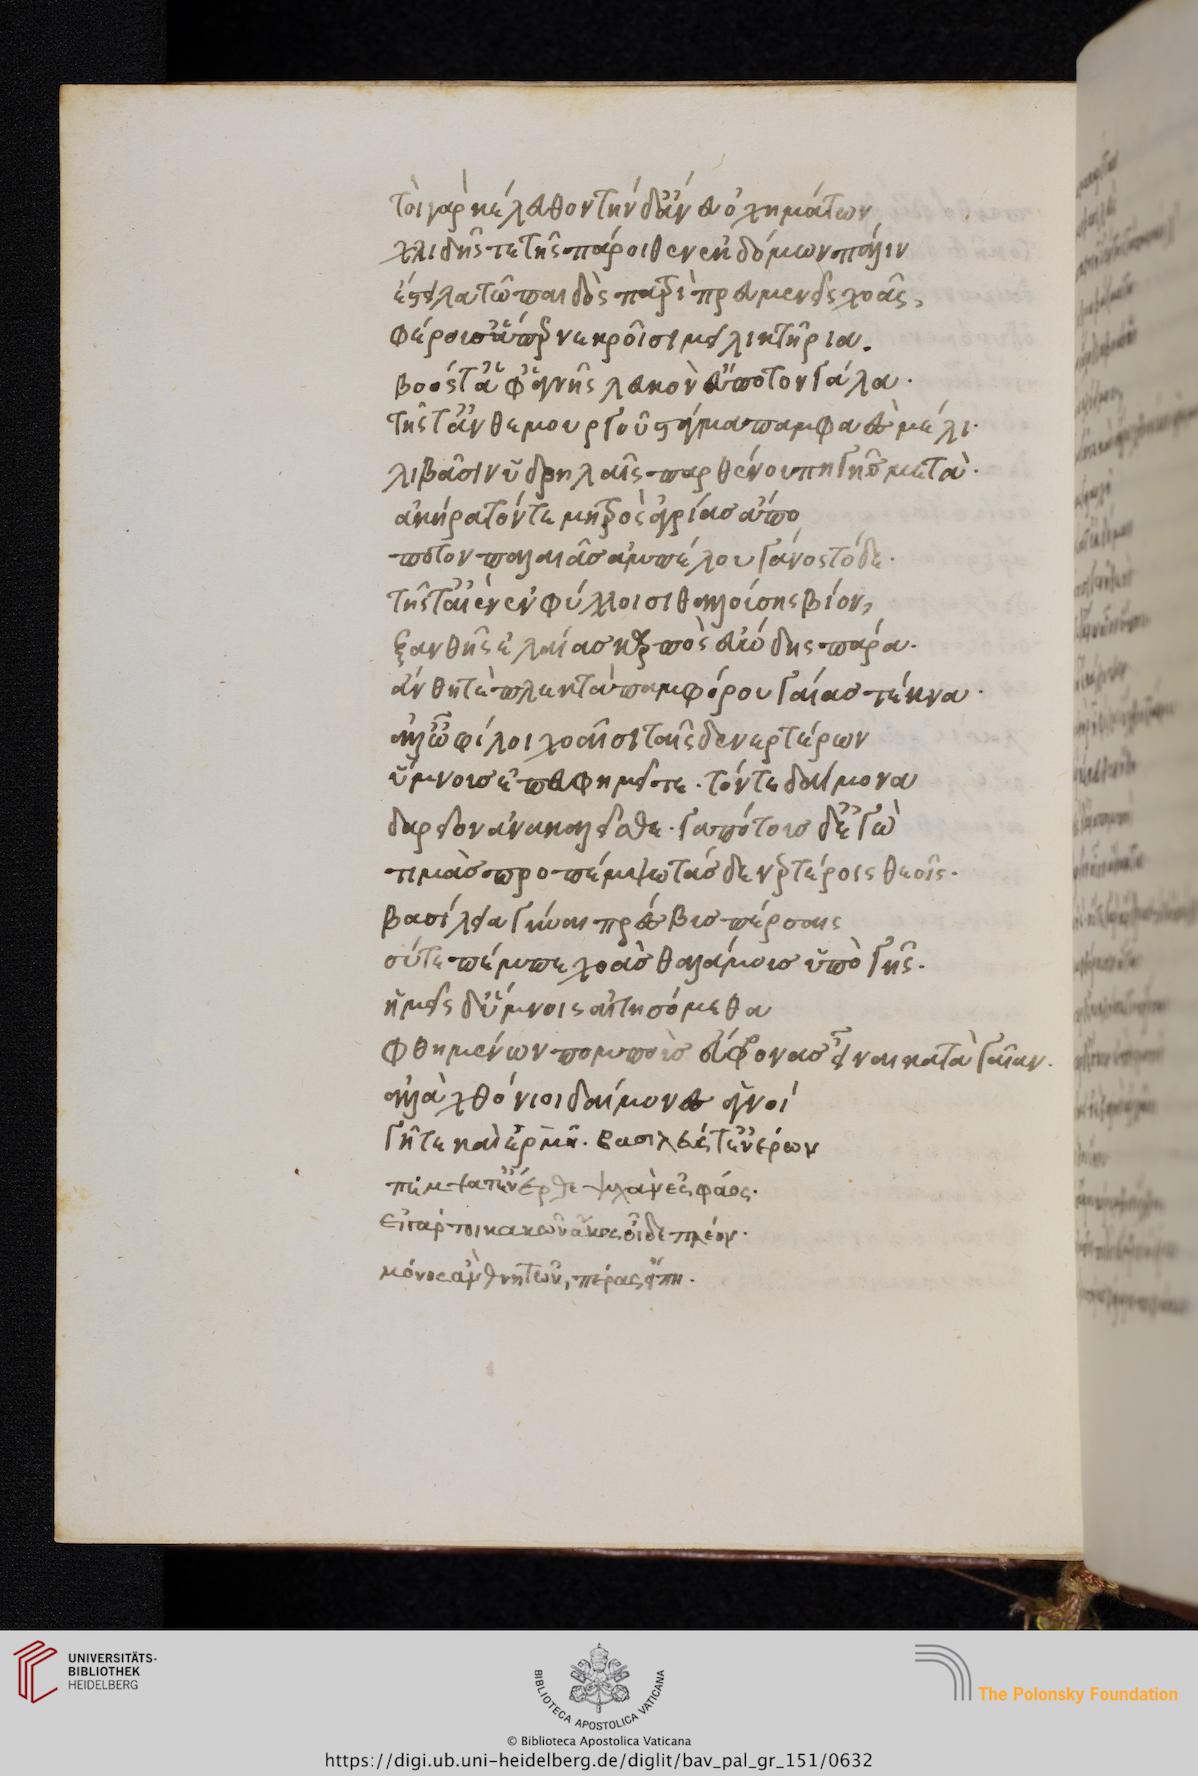 τοιγὰρ κέλευθον τήνδ' ἄνευ ὀχημάτων
χλιδῆς τε τῆς πάροιθεν ἐκ δόμων πάλιν
ἔστειλα τῶ παιδὸς πατρὶ πρευμενεῖς χοὰς,
φέρουσ' ἅπερ νεκροῖσι μειλικτήρια.
βοός τ' ἀφ' ἁγνῆς λευκὸν εὔποτον γάλα.
τῆς τ' ἀνθεμουργοῦ στάγμα παμφαὲς μέλι.
λιβάσιν ὑδρηλαῖς παρθένου πηγῆς μετὰ.
ἀκήρατόν τε μητρὸς ἀγρίας ἄπο
ποτὸν παλαιᾶς ἀμπέλου γάνος τόδε.
τῆς τ' αἰὲν ἐν φύλλοισι θαλλούσης βίον,
ξανθῆς ἐλαίας καρπὸς εὐώδης πάρα.
ἄνθη τὲ πλεκτὰ παμφόρου γαίας τέκνα.
ἀλλ' ὦ φίλοι χοαῖσι ταῖσδε νερτέρων
ὕμνους ἐπευφημεῖτε. τόν τε δαίμονα
δαρεῖον ἀνακαλεῖσθε. γαπότους δ' ἐγὼ
τιμὰς προπέμψω τάσδε νερτέροις θεοῖς.
βασίλεια γύναι πρέσβος πέρσαις
σύ τε πέμπε χοὰς θαλάμους ὑπὸ γῆς.
ἡμεῖς δ' ὕμνοις αἰτησόμεθα
φθιμένων πομποὺς εὔφρονας εἶναι κατὰ γαῖαν.
ἀλλὰ χθόνιοι δαίμονες ἁγνοί
γῆ τε καὶ ἑρμῆ. βασιλεύς τ' ἐνέρων
πέμψατ' ἔνερθε ψυχὴν ἐς φάος.
εἰ γάρ τι κακῶν ἄκος οἶδε πλέον.
μόνος ἂν θνητῶν, πέρας εἴποι.
UNIVERSITÄTS-
BIBLIOTHEK
HEIDELBERG
BIBLIOTECA APOSTOLICA VATICANA
The Polonsky Foundation
© Biblioteca Apostolica Vaticana
https://digi.ub.uni-heidelberg.de/diglit/bav_pal_gr_151/0632